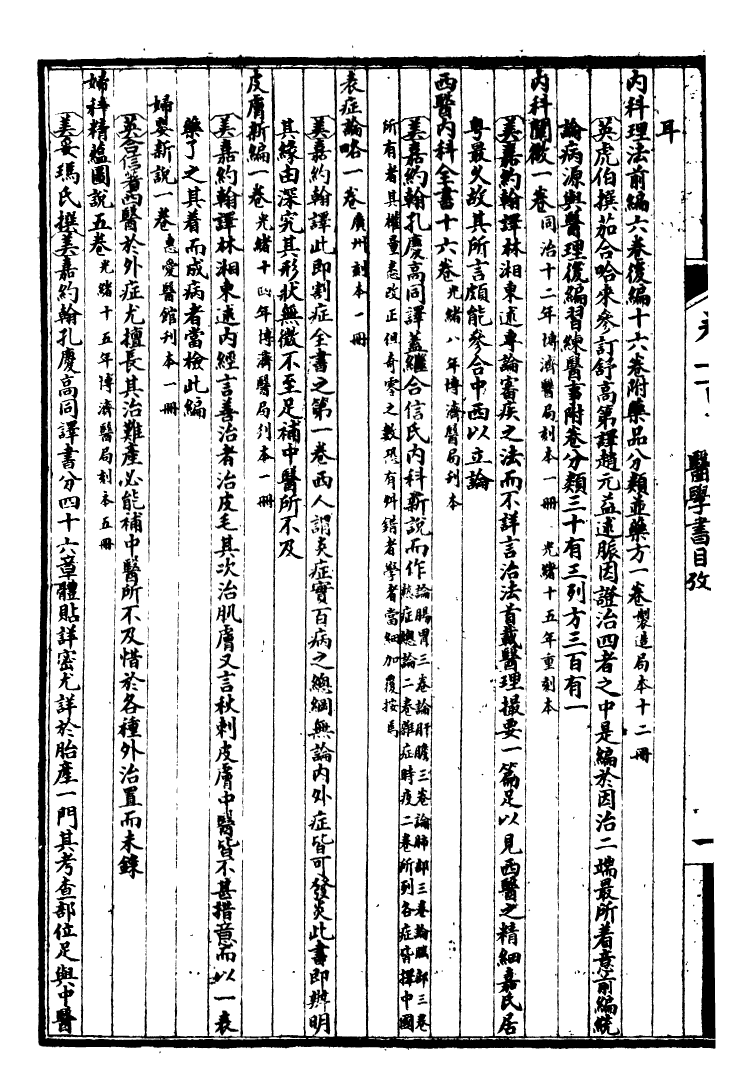 醫學書目攷
耳
內科理法前編六卷復編十六卷附藥品分類並藥方一卷製造局本十二冊
英虎伯撰茄合哈來參訂舒高第譯趙元益述脈因證治四者之中是編於因治二端最所着意前編統
論病源與醫理復編習練醫事附卷分類三十有三列方三百有一
內科闡微一卷同治十二年博濟醫局刻本一冊 光緒十五年重刻本
美嘉約翰譯林湘東述專論審疾之法而不詳言治法首載醫理撮要一篇足以見西醫之精細嘉氏居
粵最久故其所言頗能參合中西以立論
西醫內科全書十六卷光緒八年博濟醫局刊本
美嘉約翰孔慶高同譯蓋繼合信氏內科新說而作論腸胃三卷論肝膽三卷論肺部三卷論腦部三卷
熱症總論二卷雜症時疫二卷所列各症皆擇中國
所有者其權量悉改正但奇零之數恐有舛錯者學者當細加覆按焉
表症論略一卷廣州刻本一冊
美嘉約翰譯此即割症全書之第一卷西人謂炎症實百病之總綱無論內外症皆可發炎此書即辨明
其緣由深究其形狀無微不至足補中醫所不及
皮膚新編一卷光緒十四年博濟醫局刊本一冊
美嘉約翰譯林湘東述內經言善治者治皮毛其次治肌膚又言秋刺皮膚中醫皆不甚措意而以一表
藥了之其着而成病者當檢此編
婦嬰新說一卷惠愛醫館刊本一冊
英合信著西醫於外症尤擅長其治難產必能補中醫所不及惜於各種外治置而未錄
婦科精蘊圖說五卷光緒十五年博濟醫局刻本五冊
美妥瑪氏撰美嘉約翰孔慶高同譯書分四十六章體貼詳密尤詳於胎產一門其考查部位足與中醫